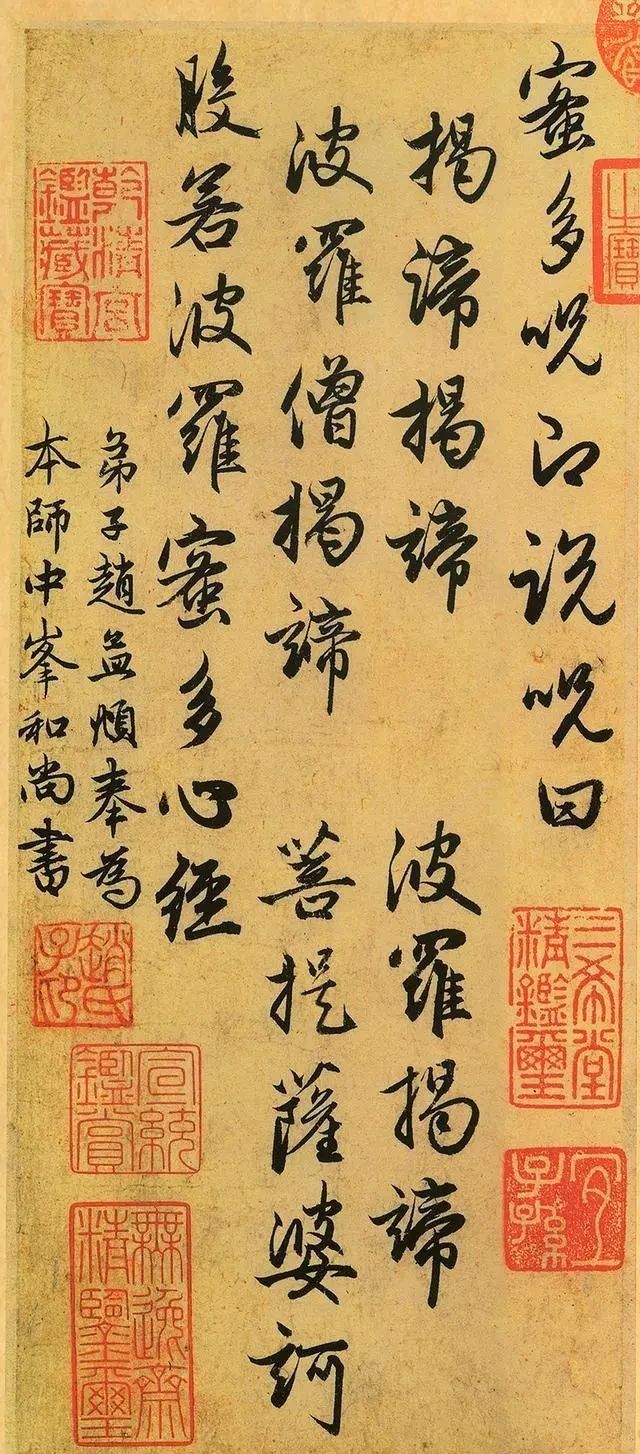 蜜多呪即說呪曰
揭諦揭諦 波羅揭諦
波羅僧揭諦 菩提薩婆訶
般若波羅蜜多心經
弟子趙孟頫奉為
本師中峯和尚書
之寶
三希堂精鑑璽
宜子孫
乾清宮鑑藏寶
趙氏子昂
宣統鑑賞
無逸齋精鑒璽